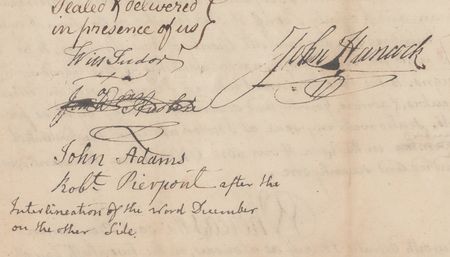 Sealed & delivered
in presence of us
Wm Tudor
John Hancock
John Adams
Robt. Pierpont after the
Interlineation of the word December
on the other Side.